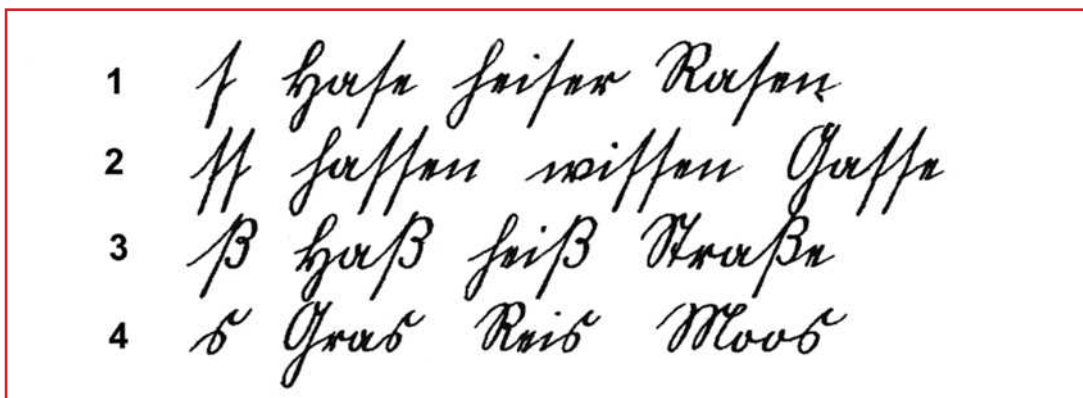 1 ſ Haſe heiſer Raſen
2 ſſ haſſen wiſſen Gaſſe
3 ß Haß heiß Straße
4 s Gras Reis Moos